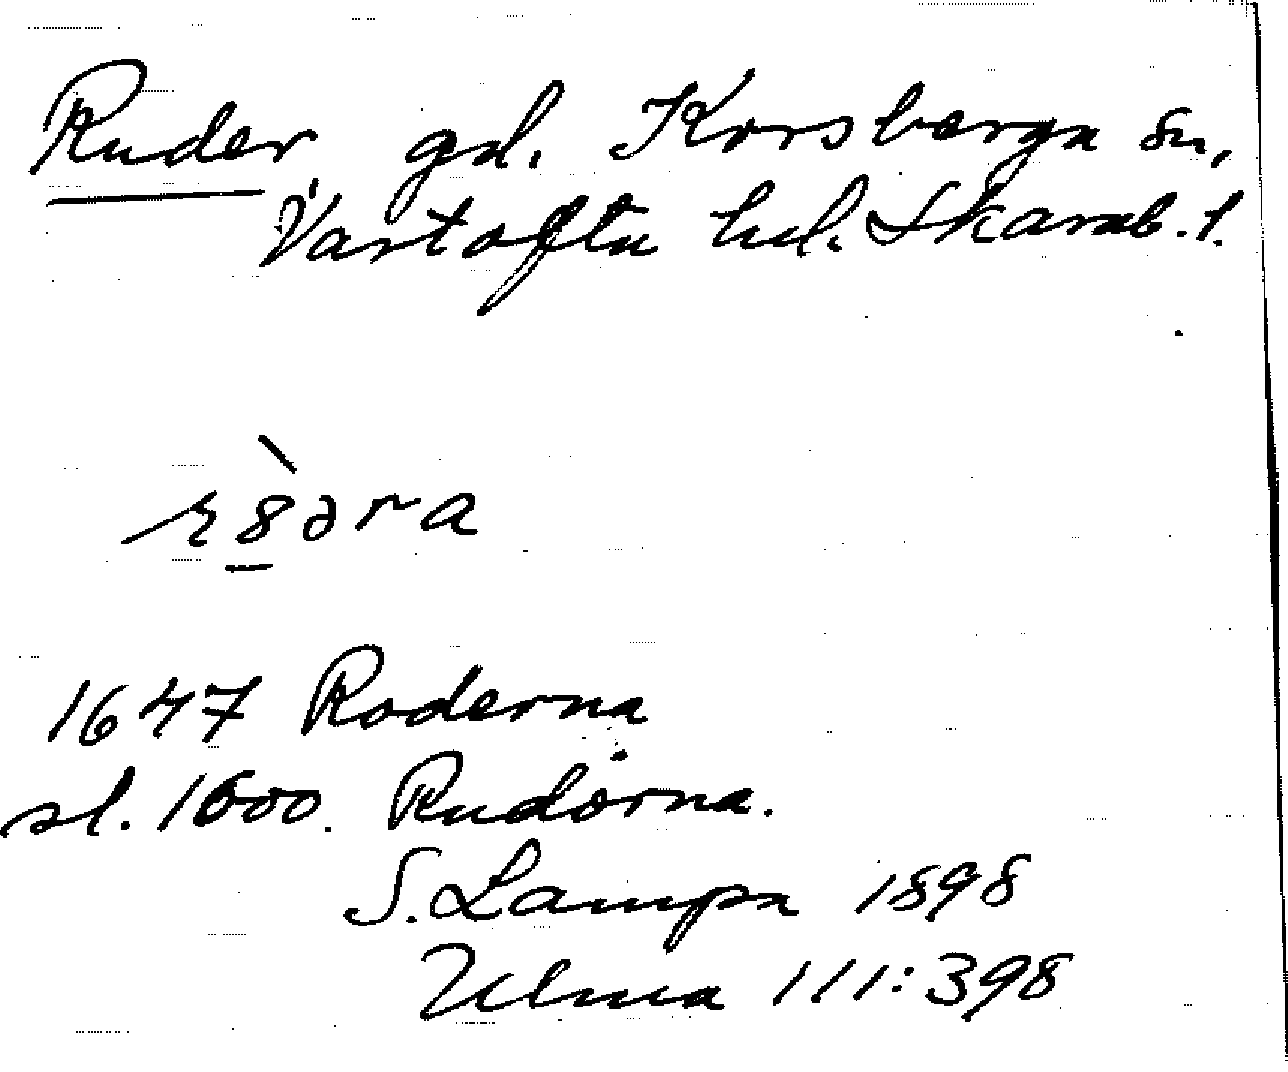 Ruder, gd. Korsberga sn,
Vartofta hd. Skarab. l.
1647 Roderna
sl. 1600. Rudorna.
S. Lampa 1898
Ulma 111:398